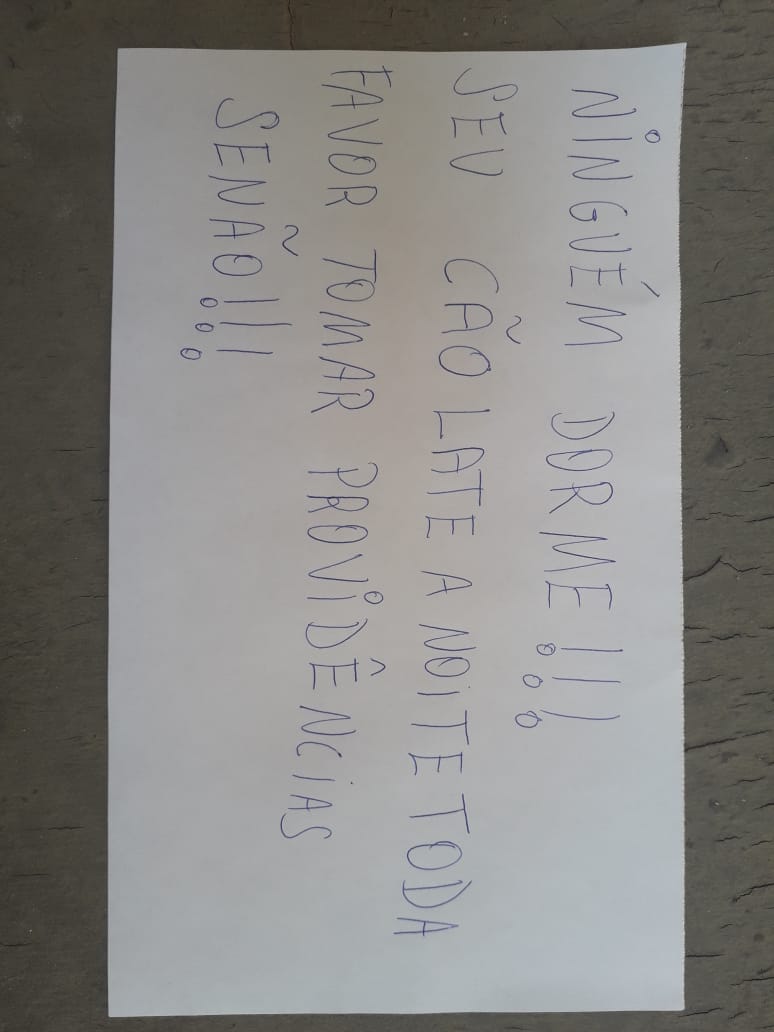 NINGUÉM DORME!!!
SEU CÃO LATE A NOITE TODA
FAVOR TOMAR PROVIDÊNCIAS
SENÃO!!!